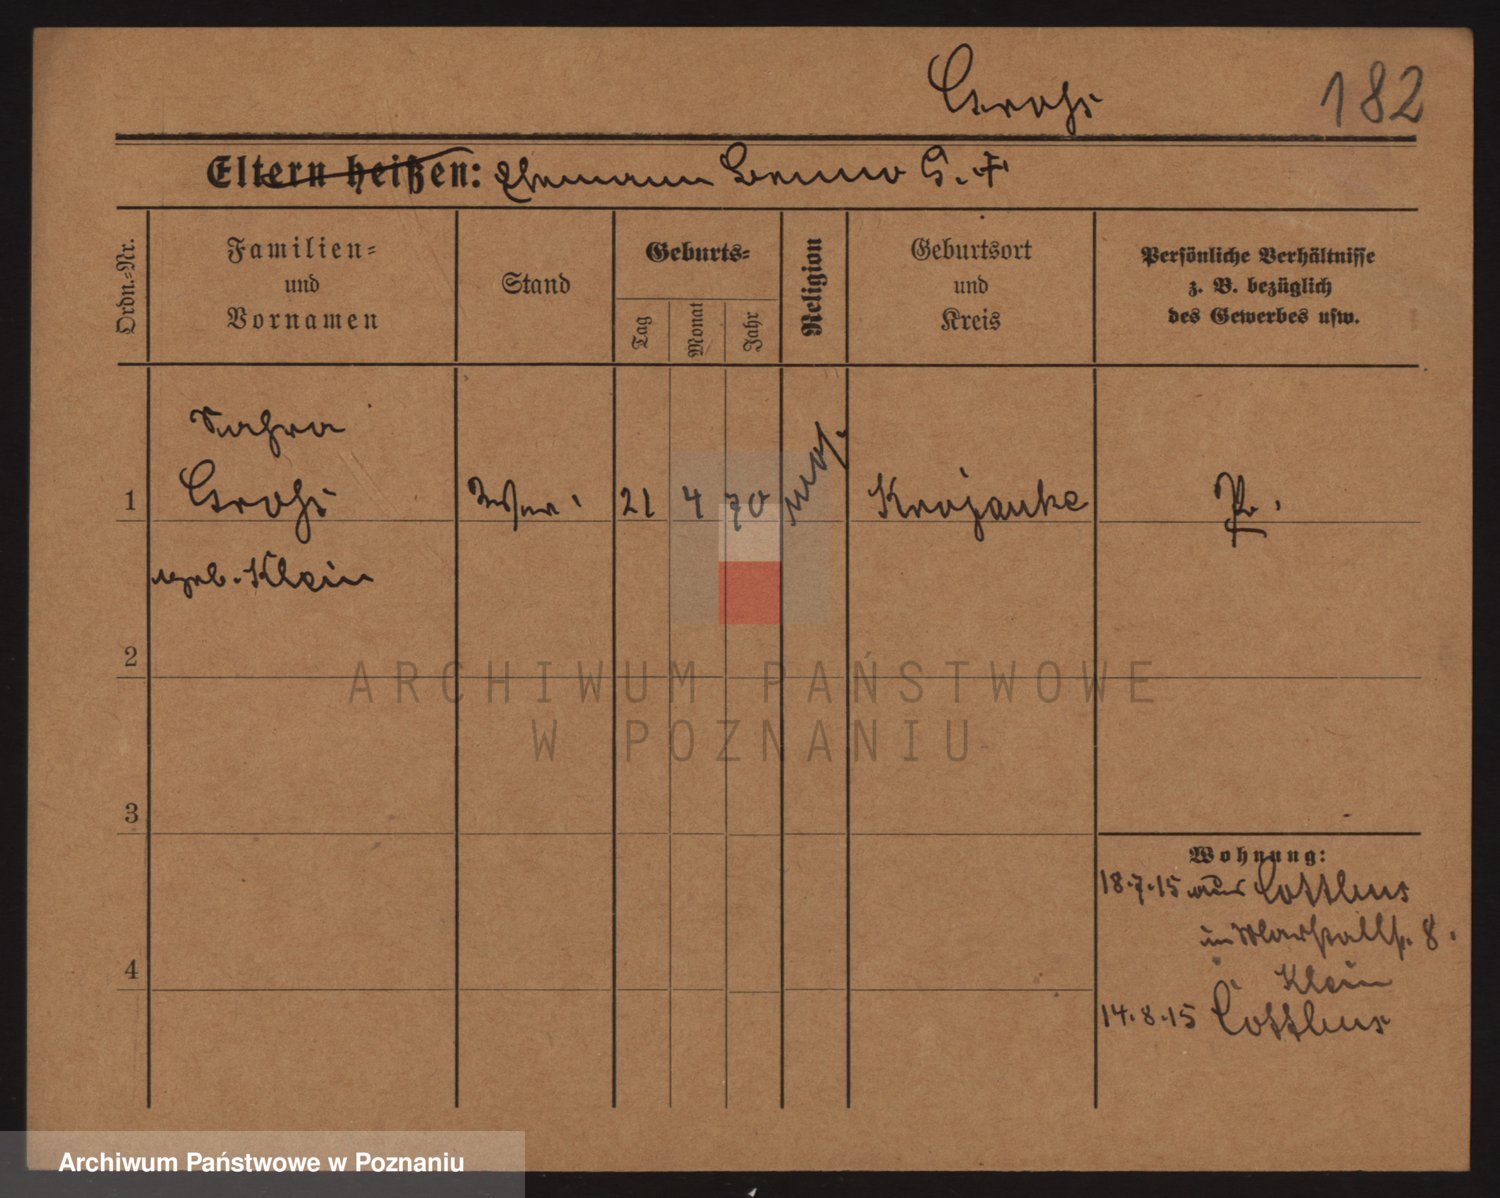 Grohs
182
Eltern heißen: Ehemann Benno G. †
Ordn.-Nr.
Familien-
und
Vornamen
Stand
Geburts-
Tag
Monat
Jahr
Religion
Geburtsort
und
Kreis
Persönliche Verhältnisse
z. B. bezüglich
des Gewerbes usw.
Sahra
1 Grohs 21 4 70 mos. Krojanke Pr.
geb. Klein
2
3
4
Wohnung:
18.7.15 aus Cottbus
Marstallstr. 8.
Klein
14.8.15 Cottbus
ARCHIWUM PAŃSTWOWE
W POZNANIU
Archiwum Państwowe w Poznaniu